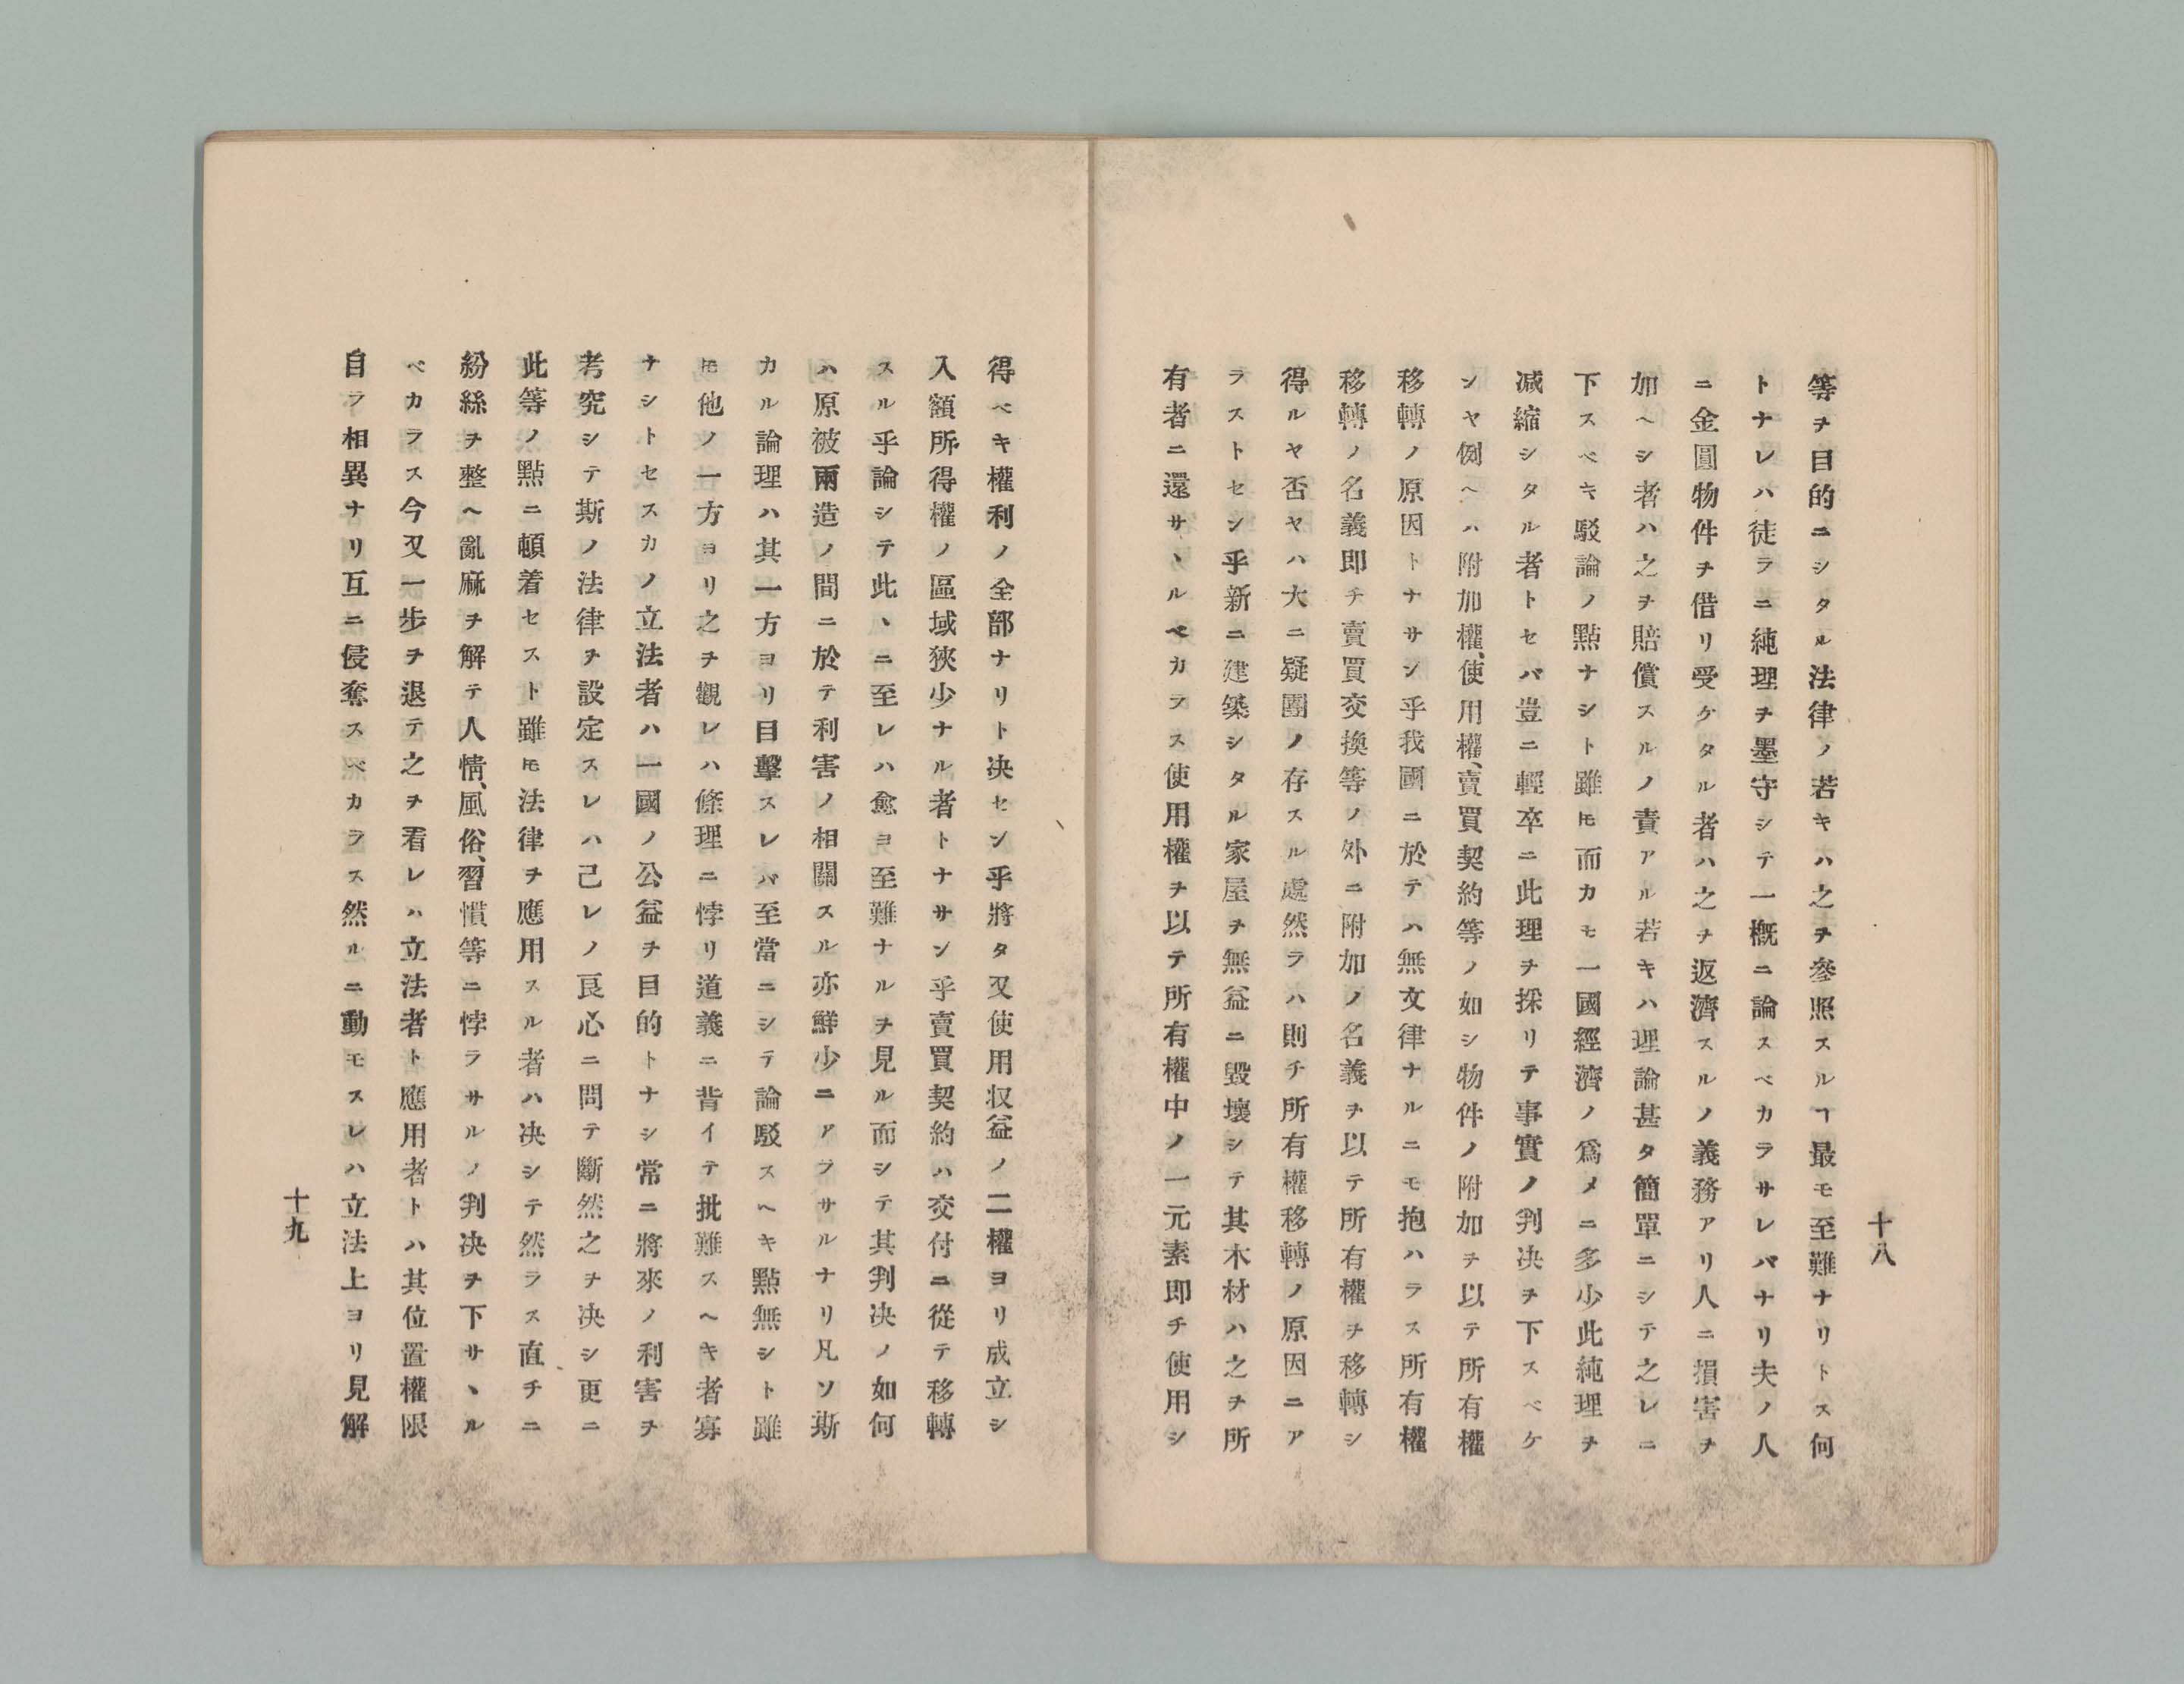 十八
等ヲ目的ニシタル法律ノ若キハ之ヲ參照スルヿ最モ至難ナリトス何
トナレハ徒ラニ純理ヲ墨守シテ一概ニ論スベカラサレバナリ夫ノ人
ニ金圓物件ヲ借リ受ケタル者ハ之ヲ返濟スルノ義務アリ人ニ損害ヲ
加ヘシ者ハ之ヲ賠償スルノ責アル若キハ理論甚タ簡單ニシテ之レニ
下スベキ駁論ノ點ナシト雖𪜈而カモ一國經濟ノ爲メニ多少此純理ヲ
减縮シタル者トセバ豈ニ輕卒ニ此理ヲ採リテ事實ノ判决ヲ下スベケ
ンヤ例ヘハ附加權、使用權、賣買契約等ノ如シ物件ノ附加ヲ以テ所有權
移轉ノ原因トナサン乎我國ニ於テハ無文律ナルニモ抱ハラス所有權
移轉ノ名義即チ賣買交換等ノ外ニ附加ノ名義ヲ以テ所有權ヲ移轉シ
得ルヤ否ヤハ大ニ疑團ノ存スル處然ラハ則チ所有權移轉ノ原因ニア
ラストセン乎新ニ建築シタル家屋ヲ無益ニ毀壞シテ其木材ハ之ヲ所
有者ニ還サヽルベカラス使用權ヲ以テ所有權中ノ一元素即チ使用シ
得ベキ權利ノ全部ナリト决セン乎將タ又使用収益ノ二權ヨリ成立シ
入額所得權ノ區域狹少ナル者トナサン乎賣買契約ハ交付ニ從テ移轉
スル乎論シテ此ヽニ至レハ愈ヨ至難ナルヲ見ル而シテ其判决ノ如何
ハ原被兩造ノ間ニ於テ利害ノ相關スル亦鮮少ニアラサルナリ凡ソ斯
カル論理ハ其一方ヨリ目擊スレバ至當ニシテ論駁スヘキ點無シト雖
𪜈他ノ一方ヨリ之ヲ觀レハ條理ニ悖リ道義ニ背イテ批難スヘキ者寡
ナシトセスカノ立法者ハ一國ノ公益ヲ目的トナシ常ニ將來ノ利害ヲ
考究シテ斯ノ法律ヲ設定スレハ己レノ良心ニ問テ斷然之ヲ决シ更ニ
此等ノ點ニ頓着セスト雖𪜈法律ヲ應用スル者ハ决シテ然ラス直チニ
紛絲ヲ整ヘ亂麻ヲ解テ人情、風俗、習慣等ニ悖ラサルノ判决ヲ下サヽル
ベカラス今又一步ヲ退テ之ヲ看レハ立法者ト應用者トハ其位置權限
自ラ相異ナリ互ニ侵奪スベカラス然ルニ動モスレハ立法上ヨリ見解
十九